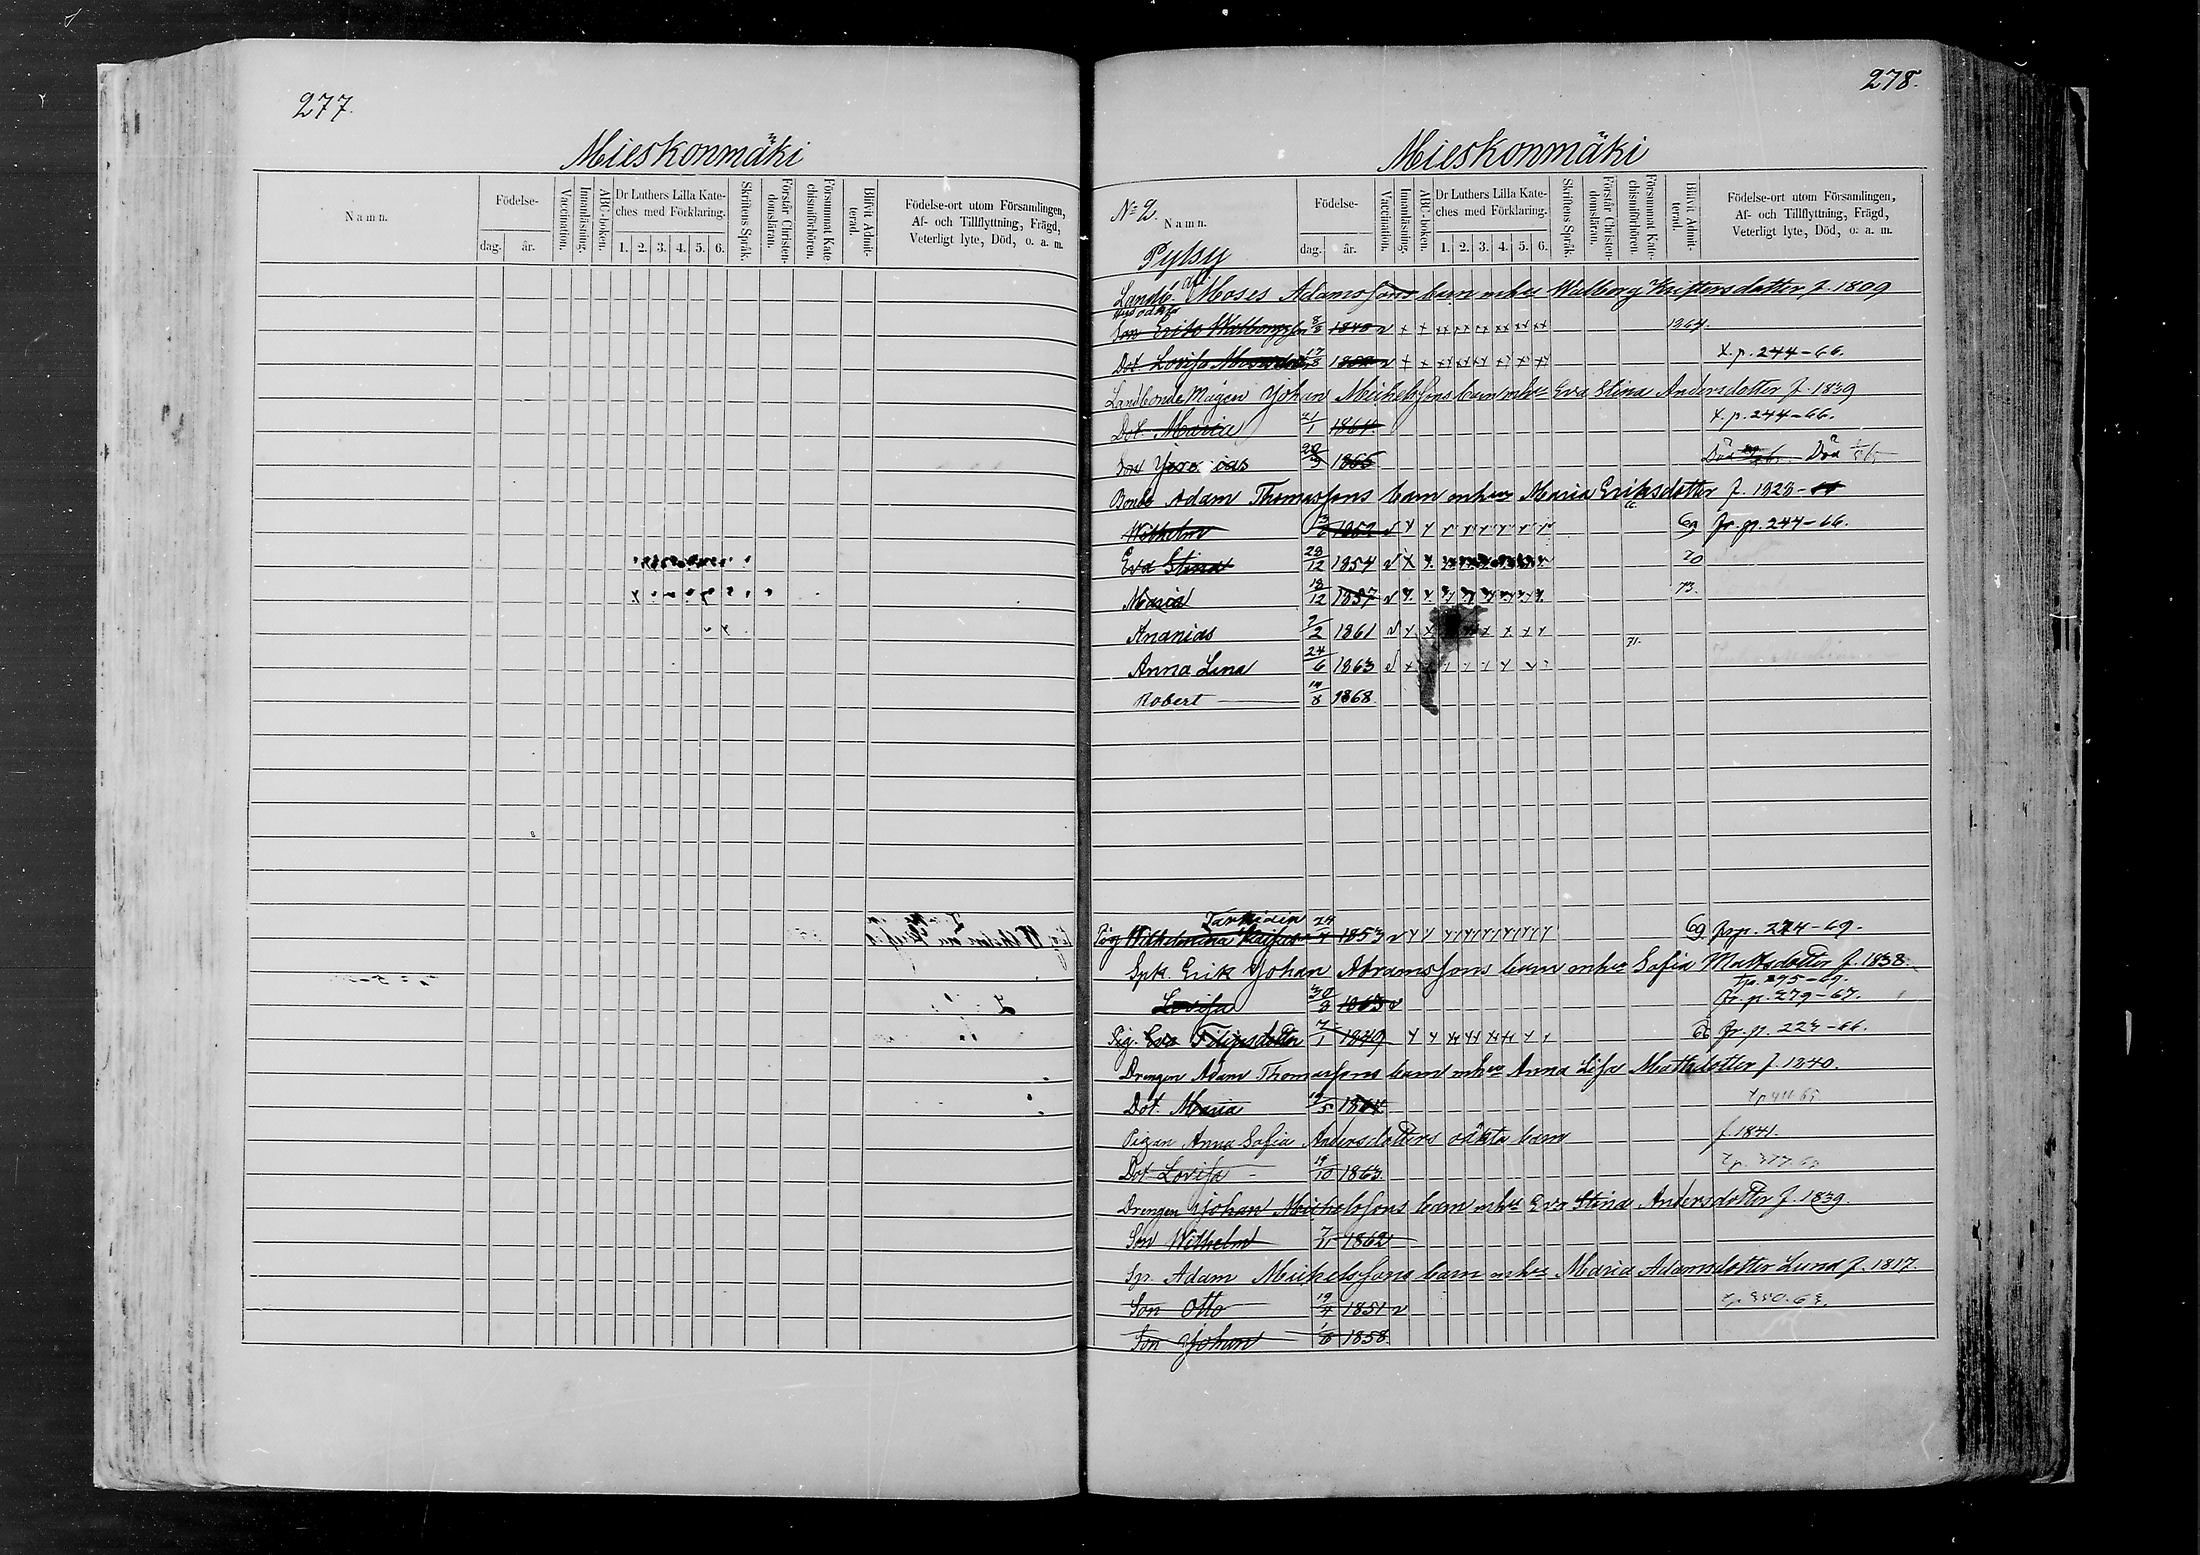 277.
Mieskonmäki
Namn.
Födelse-
dag. år.
Vaccination.
Innanläsning.
ABC-boken.
Dr Luthers Lilla Kate-
ches med Förklaring.
1. 2. 3. 4. 5. 6.
Skriftens Språk.
Förstår Christen-
domsläran.
Försummat Kate-
chismiförhören.
Blifvit Admit-
terad.
Födelse-ort utom Församlingen,
Af- och Tillflyttning, Frägd,
Veterligt lyte, Död, o. a. m.
278.
Mieskonmäki
No 2.
Namn.
Födelse-
dag. år.
Vaccination.
Innanläsning.
ABC-boken.
Dr Luthers Lilla Kate-
ches med Förklaring.
1. 2. 3. 4. 5. 6.
Skriftens Språk.
Förstår Christen-
domsläran.
Försummat Kate-
chismiförhören.
Blifvit Admit-
terad.
Födelse-ort utom Församlingen,
Af- och Tillflyttning, Frägd,
Veterligt lyte, Död, o. a. m.
Pytsy
Landb. Moses Adamssons barn mhu Walborg f. 1809
Son 1864.
Dot. Lovisa 17/3 t. p. 244-66.
Landbonde Mågen Johan Michelssons barn mhu Eva Stina Andersdotter f. 1839
Dot. Maria 21/1 1864. t. p. 244-66.
Son 1865 Död
Bonde Adam Thomassons barn mhu Maria Eriksdotter f. 1823
Wilhelm 1852 69 fr. p. 244-66.
Eva Stina 28/12 1854 70
Maria 18/12 1857 73.
Ananias 1861
71.
Anna Lena 24/6 1863
Robert 1868.
Pig Wilhelmina 1853 69
Spk. Erik Johan Abramssons barn mhu Sofia Mattsdotter f. 1838.
tp. 275-69
Lovisa 30/8 1863 fr. p. 279-67.
Pig. Eva Filipsdotter 7/1 1849 fr. p. 223-66.
Drengen Adam Thomassons barn mhu Anna Lisa Mattsdotter f. 1840.
Dot. Maria 1864
Pigan Anna Sofia Andersdotters oäkta barn f. 1841.
Dot Lovisa 19/10 1863.
Drengen Johan Michelssons barn mhu Eva Stina Andersdotter f. 1839.
Son Wilhelm 1862
Sp. Adam Michelssons barn mhu Maria Adamsdotter Luna f. 1817.
Son Otto 19/4 1851
Son Johan 1/8 1858